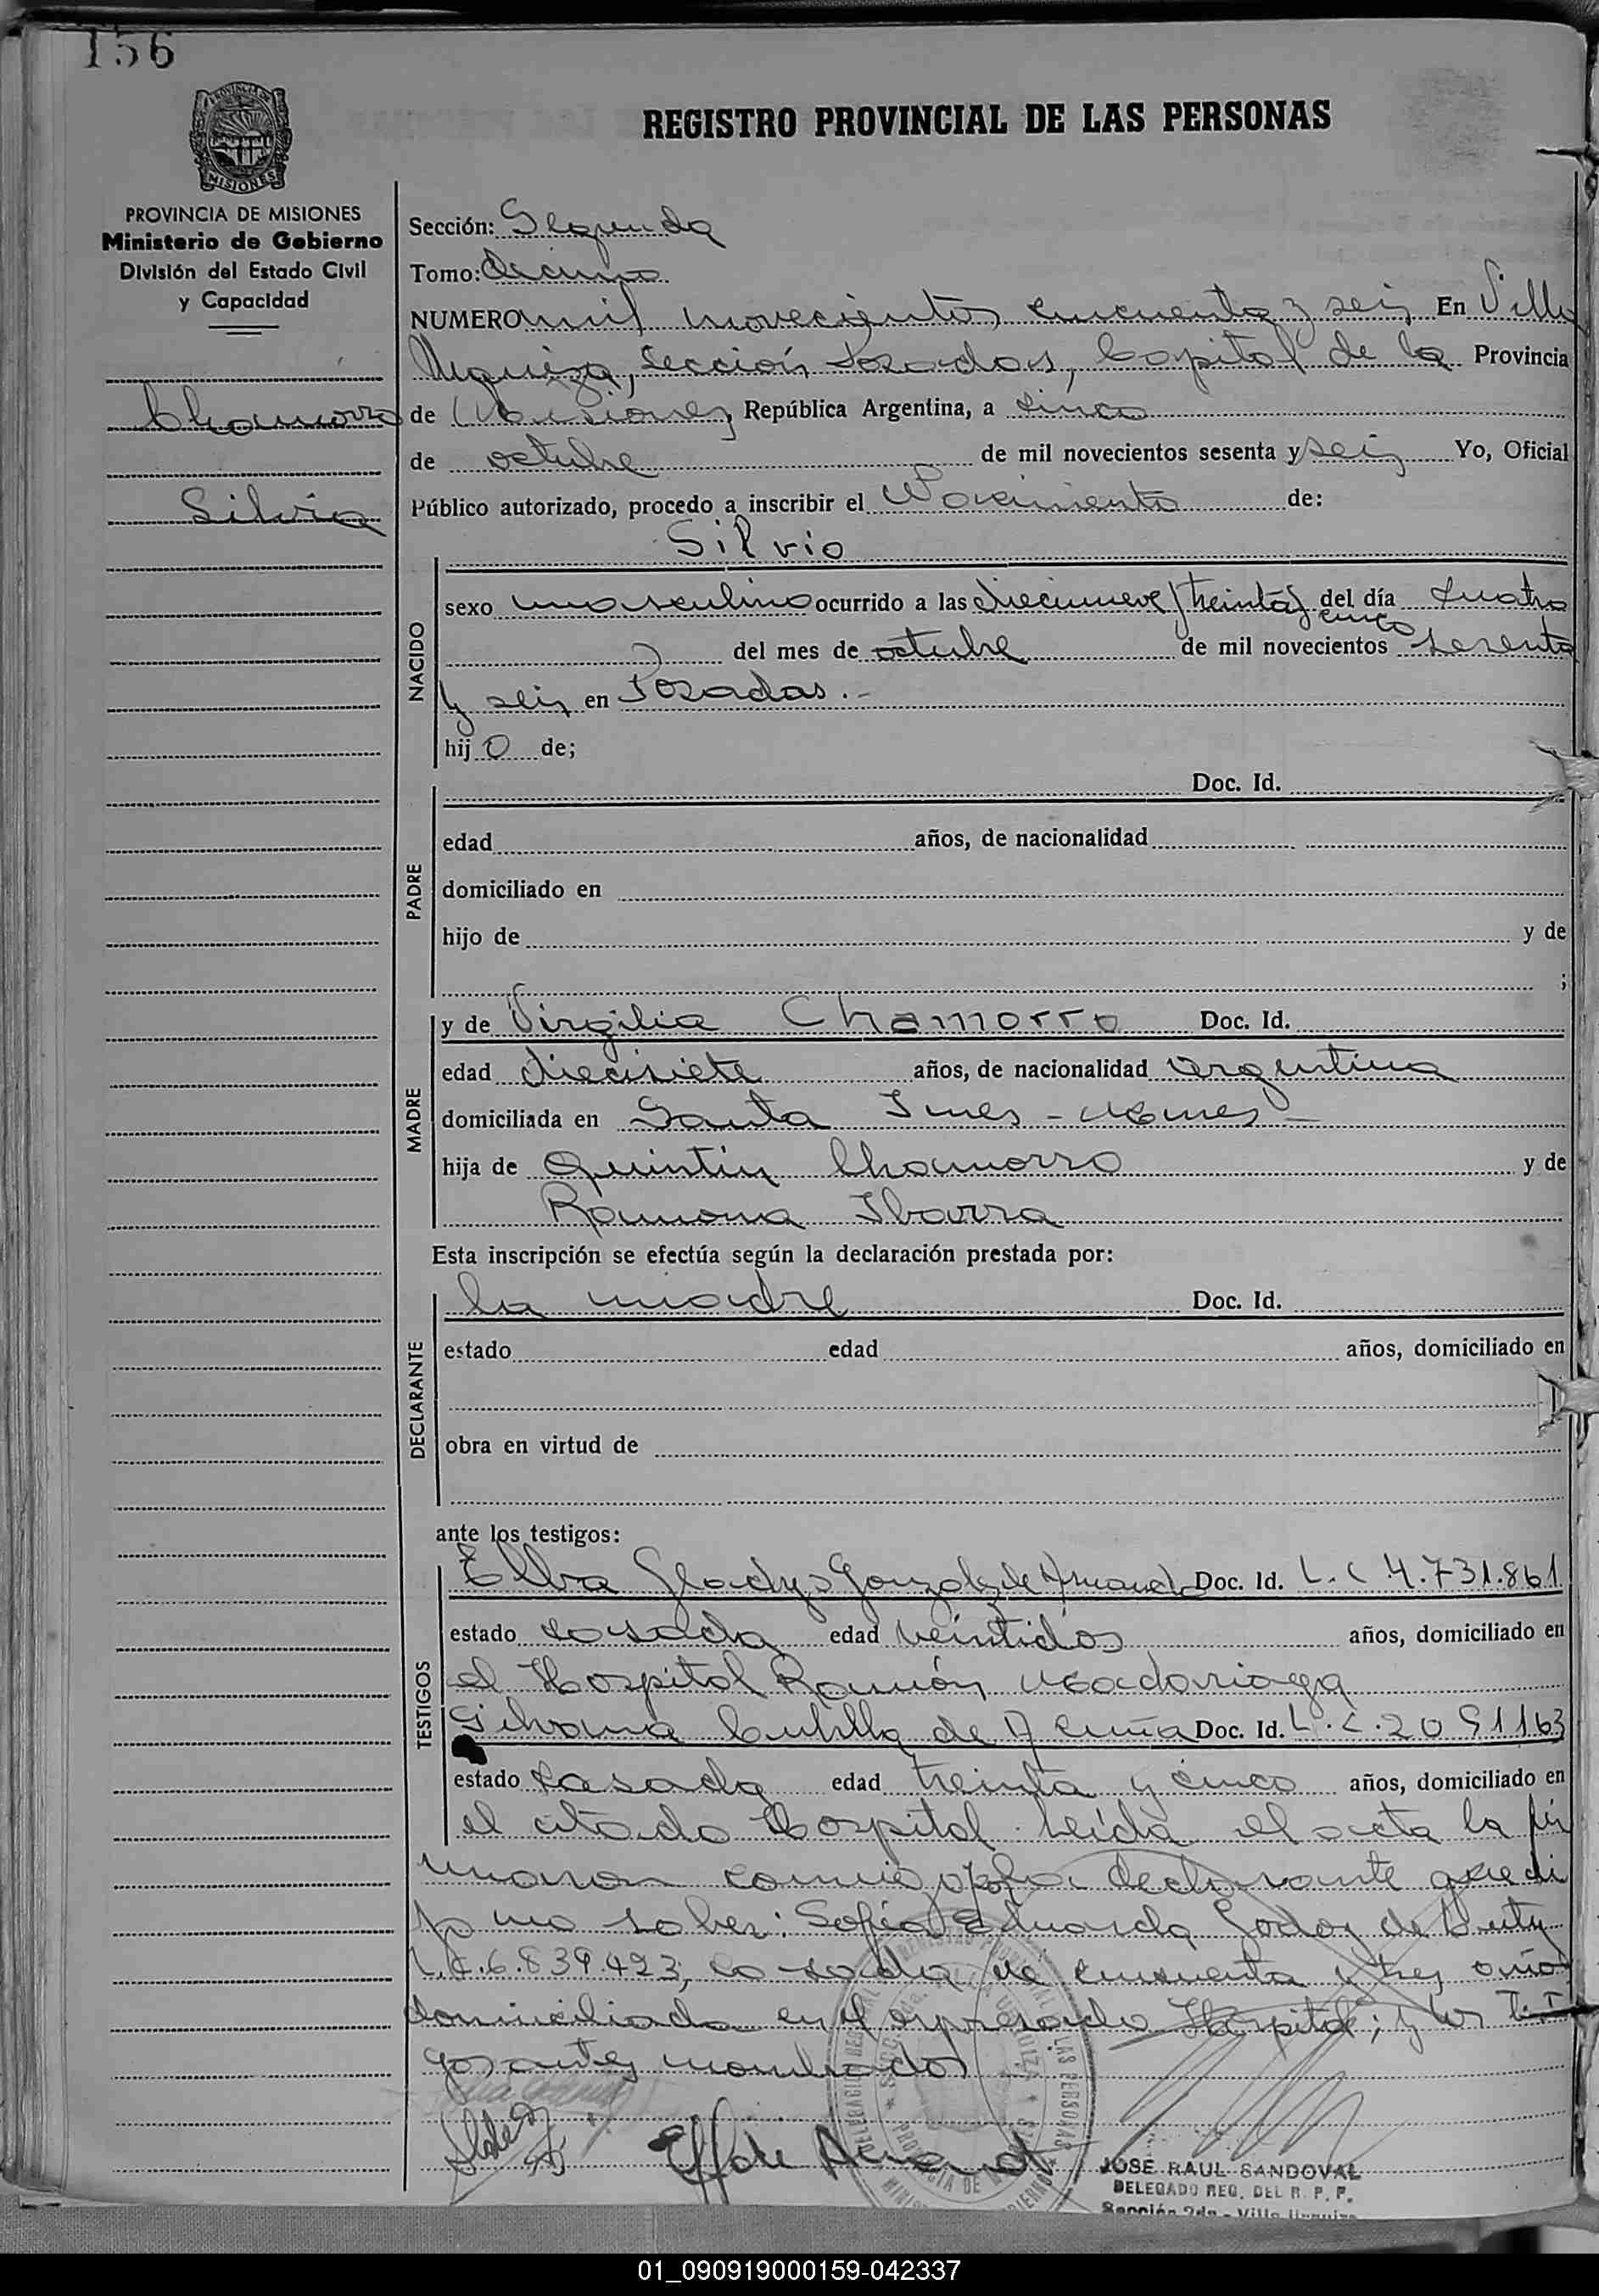 156
REGISTRO PROVINCIAL DE LAS PERSONAS
MISIONES
PROVINCIA DE MISIONES
Ministerio de Gobierno
División del Estado Civil
y Capacidad
Chamorro
Silvio
Sección: Segunda
Tomo: decimo
NUMERO mil novecientos cincuenta y seis En Villa
Urquiza, sección Posadas, Capital de la Provincia
de Misiones República Argentina, a cinco
de octubre de mil novecientos sesenta y seis Yo, Oficial
Público autorizado, procedo a inscribir el Nacimiento de:
Silvio
NACIDO
sexo masculino ocurrido a las diecinueve y treinta y cinco del día cuatro
del mes de octubre de mil novecientos sesenta
y seis en Posadas.-
hijo de;
PADRE
Doc. Id.
edad años, de nacionalidad
domiciliado en
hijo de y de
;
MADRE
y de Virgilia Chamorro Doc. Id.
edad diecisiete años, de nacionalidad argentina
domiciliada en Santa Ines - Mnes -
hija de Quintin Chamorro y de
Ramona Ibarra
Esta inscripción se efectúa según la declaración prestada por:
DECLARANTE
la madre Doc. Id.
estado edad años, domiciliado en
obra en virtud de
ante los testigos:
TESTIGOS
Elba Gladys Gonzalez de Doc. Id. L.C 4.731.861
estado casada edad veintidos años, domiciliado en
el Hospital Ramón Madariaga
Silvana de Acuña Doc. Id. L.C. 2091163
estado casada edad treinta y cinco años, domiciliado en
el citado Hospital. Leida el acta la fir
maron conmigo declarante que di
jo no saber: Sofia Eduarda Godoy de
L.C.6.839.423, casada de cincuenta y tres años
domiciliada en el expresado Hospital; y los testi
gos antes nombrados
JOSE RAUL SANDOVAL
DELEGADO REG. DEL R. P. P.
Sección 2da - Villa Urquiza
01_090919000159-042337